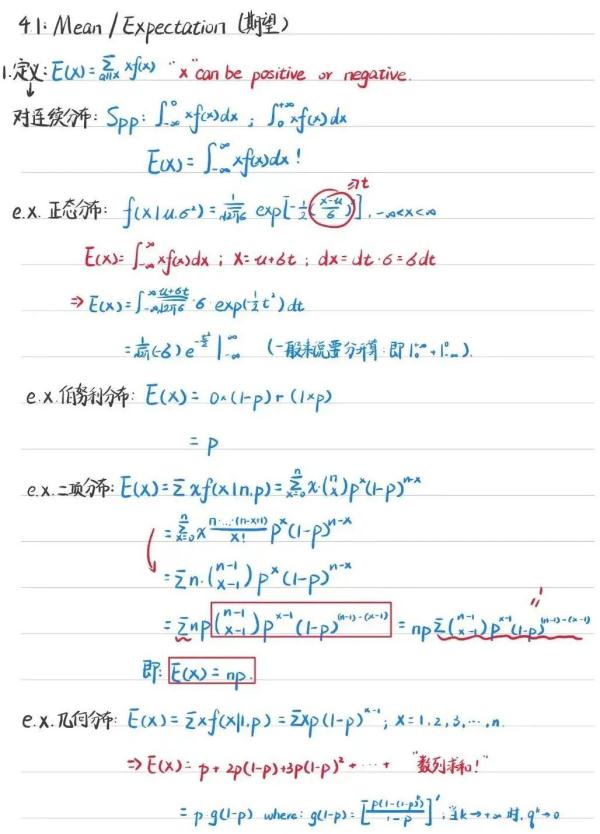 4.1: Mean / Expectation (期望)
1.定义: E(x) = Σ_{all x} x f(x) "x" can be positive or negative.
↓
对连续分布: Spp: ∫_{-∞}^{0} x f(x) dx ; ∫_{0}^{+∞} x f(x) dx
E(x) = ∫_{-∞}^{∞} x f(x) dx !
e.x. 正态分布: f(x|u,σ²) = 1/(√2π σ) exp[-1/2 ((x-u)/σ)²], -∞<x<∞ ⇒t
E(x) = ∫_{-∞}^{∞} x f(x) dx ; x = u+σt ; dx = dt·σ = σdt
⇒ E(x) = ∫_{-∞}^{∞} (u+σt)/(√2π σ) · σ exp(-1/2 t²) dt
= 1/√2π (-σ) e^{-t²/2} |_{-∞}^{∞} (一般来说要分开算: 即 |_{0}^{+∞} + |_{-∞}^{0}).
e.x. 伯努利分布: E(x) = 0×(1-p) + (1×p)
= p
e.x. 二项分布: E(x) = Σ x f(x|n,p) = Σ_{x=0}^{n} x·(n x) p^x (1-p)^{n-x}
= Σ_{x=0}^{n} x (n·…·(n-x+1))/x! p^x (1-p)^{n-x}
= Σ n·(n-1 x-1) p^x (1-p)^{n-x}
= Σ np (n-1 x-1) p^{x-1} (1-p)^{(n-1)-(x-1)} = np Σ (n-1 x-1) p^{x-1} (1-p)^{(n-1)-(x-1)} "1
即: E(x) = np.
e.x. 几何分布: E(x) = Σ x f(x|1,p) = Σ x p (1-p)^{x-1}; x = 1, 2, 3, …, n.
⇒ E(x) = p + 2p(1-p) + 3p(1-p)² + ⋯ + "数列求和!"
= p·g(1-p) where: g(1-p) = [p(1-(1-p)^k)/(1-p)]', 当k→+∞时, q^k→0